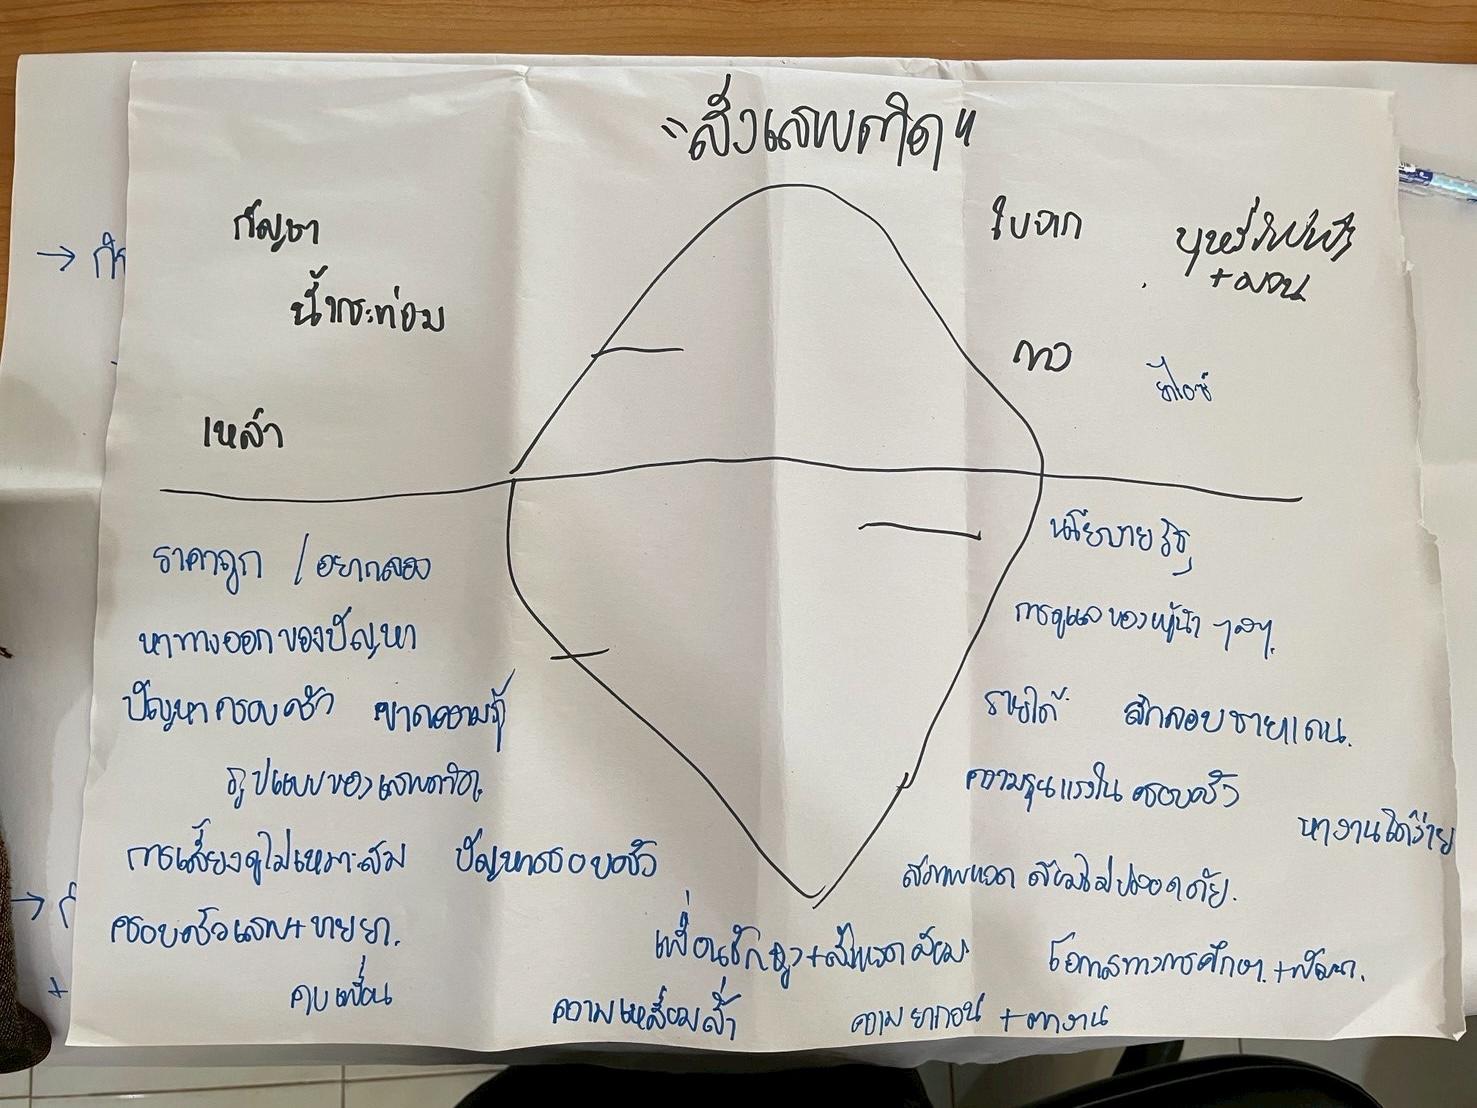 "สิ่งเสพติด"
กัญชา
ใบจาก
บุหรี่ไฟฟ้า
+มวน
น้ำกระท่อม
กาว
ยาไอซ์
เหล้า
นโยบายรัฐ
ราคาถูก / อยากลอง
การดูแลของผู้นำ
หาทางออกของปัญหา
ปัญหาครอบครัว ขาดความรู้
รายได้ ลักลอบชายแดน.
รูปแบบของเสพติด.
ความรุนแรงในครอบครัว
หางานได้ง่าย
การเลี้ยงดูไม่เหมาะสม ปัญหาครอบครัว
สภาพแวด ล้อมไม่ปลอดภัย.
ครอบครัวเสพ+ขายยา.
เพื่อนชักจูง+สิ่งแวดล้อม
โอกาสทางการศึกษา.+พัฒนา.
คบเพื่อน
ความเหลื่อมล้ำ
ความยากจน +ตกงาน